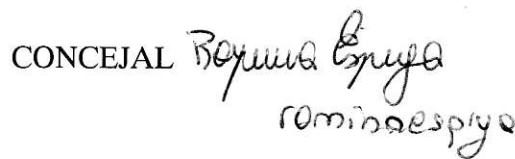 CONCEJAL Romina Espiya
rominaespiya